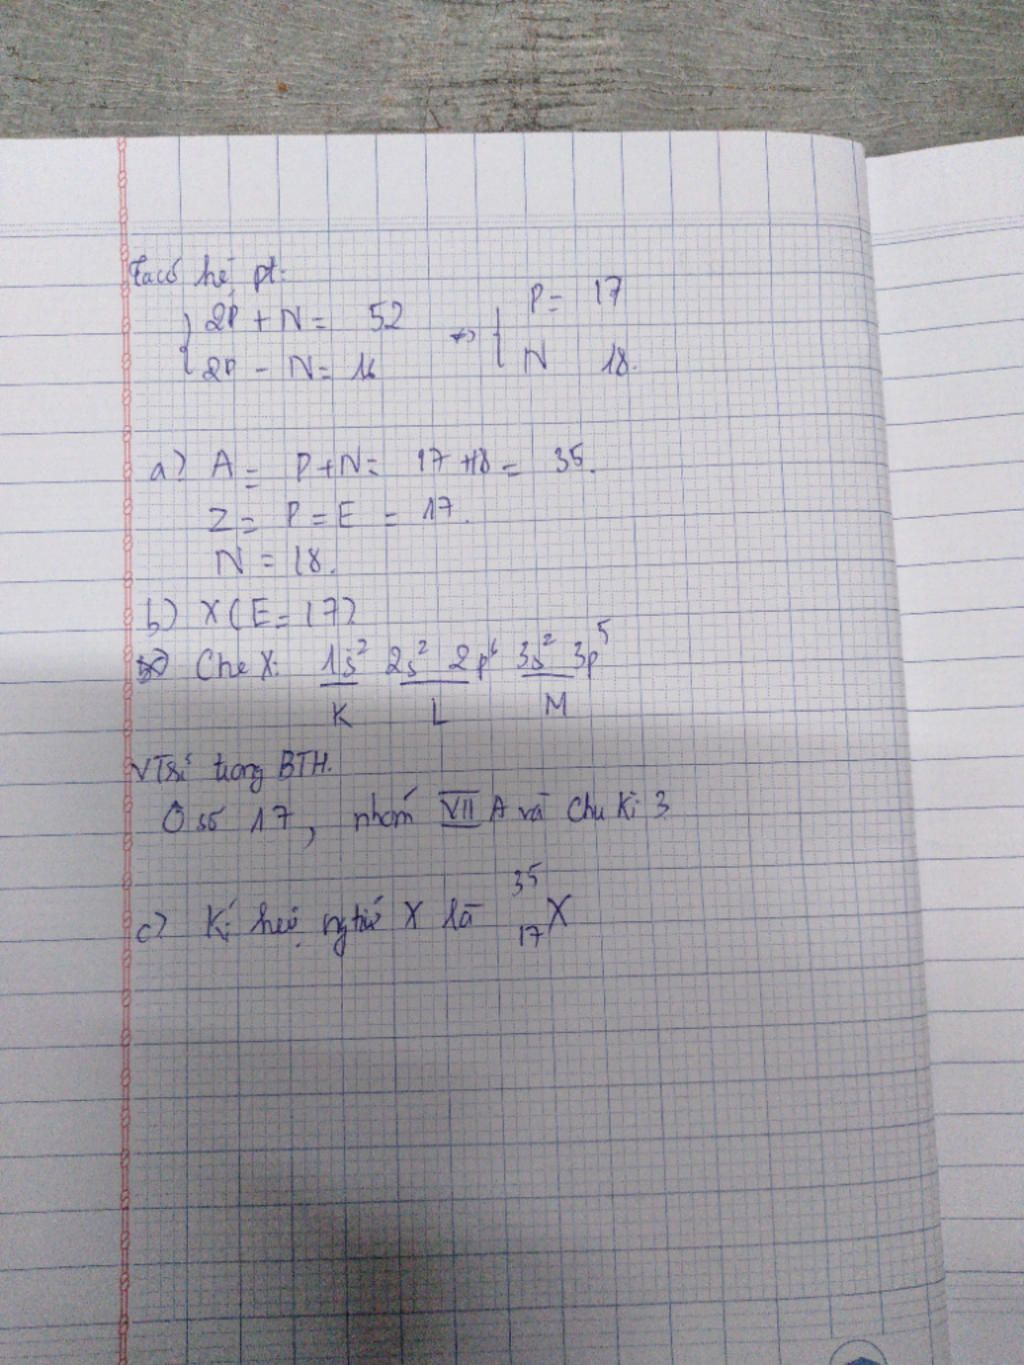 Ta có hệ pt:
2P + N = 52
2P - N = 16
<=> P = 17
N 18.
a) A = P+N = 17+18 = 35.
Z = P = E = 17.
N = 18.
b) X(E=17)
Che X: 1s² 2s² 2p⁶ 3s² 3p⁵
K L M
VTrí trong BTH.
Ô số 17, nhóm VII A và Chu Kì 3
c) Kí hiệu ngtử X là ³⁵₁₇X